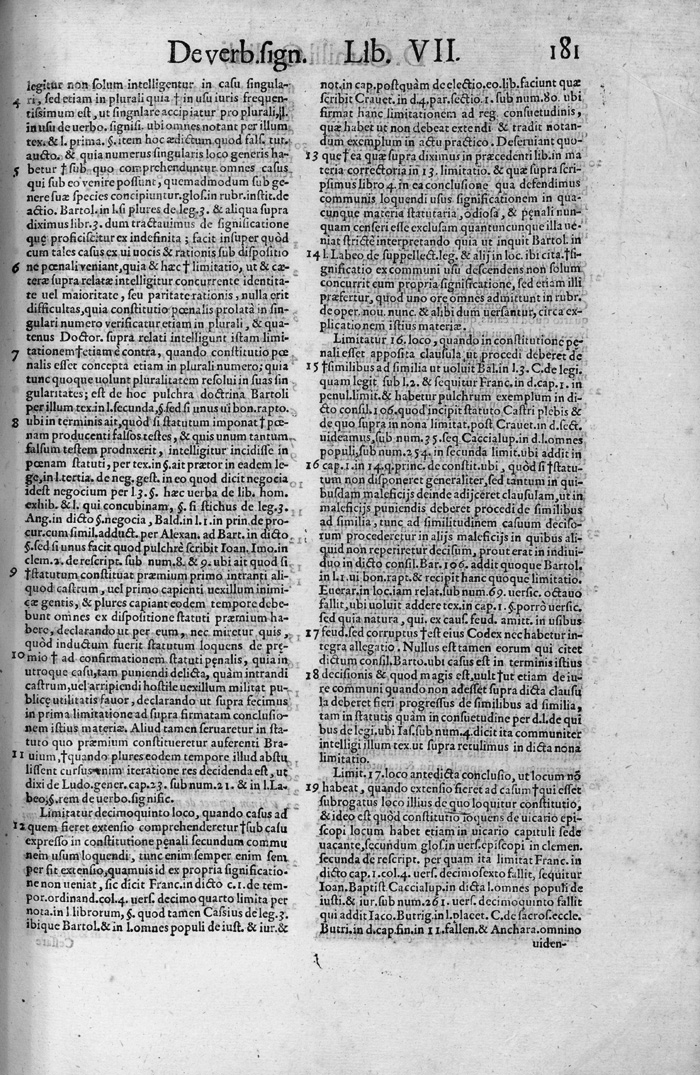 De verb. sign. Lib. VII. 181
legitur non solum intelligentur in casu singula-
4 ri, sed etiam in plurali quia † in usu iuris frequen-
tissimum est, ut singulare accipiatur pro plurali, l.
in usu de uerbo. signifi. ubi omnes notant per illum
tex. & l. prima. §. item hoc ædictum quod fals. tut.
aucto. & quia numerus singularis loco generis ha-
5 betur † sub quo comprehenduntur omnes casus
qui sub eo venire possunt, quemadmodum sub ge-
nere suæ species concipiuntur. glos. in rubr. instit. de
actio. Bartol. in l. si plures de leg. 3. & aliqua supra
diximus libr. 3. dum tractauimus de significatione
que proficiscitur ex indefinita; facit insuper quòd
cum tales casus ex ui uocis & rationis sub dispositio
6 ne pœnali veniant, quia & hæc † limitatio, ut & cæ-
teræ supra relatæ intelligitur concurrente identita-
te uel maioritate, seu paritate rationis, nulla erit
difficultas, quia constitutio pœnalis prolata in sin-
gulari numero verificatur etiam in plurali, & qua-
tenus Doctor. supra relati intelligunt istam limi-
7 tationem † etiam è contra, quando constitutio pœ
nalis esset concepta etiam in plurali numero; quia
tunc quoque uolunt pluralitatem resolui in suas sin
gularitates; est de hoc pulchra doctrina Bartoli
per illum tex. in l. secunda, §. sed si unus ui bon. rapto.
8 ubi in terminis ait, quòd si statutum imponat † pœ-
nam producenti falsos testes, & quis unum tantum
falsum testem prodnxerit, intelligitur incidisse in
pœnam statuti, per tex. in §. ait prætor in eadem le-
ge, in l. tertia. de neg. gest. in eo quod dicit negocia
idest negocium per l. 3. §. hæc uerba de lib. hom.
exhib. & l. qui concubinam, §. si stichus de leg. 3.
Ang. in dicto §. negocia, Bald. in l. 1. in prin. de pro-
cur. cum simil. adduct. per Alexan. ad Bart. in dicto
§. sed si unus facit quod pulchrè scribit Ioan. Imo. in
clem. 2. de rescript. sub num. 8. & 9. ubi ait quod si
9 † statutum constituat præmium primo intranti ali-
quod castrum, uel primo capienti uexillum inimi-
cæ gentis, & plures capiant eodem tempore debe-
bunt omnes ex dispositione statuti præmium ha-
bere, declarando ut per eum, nec miretur quis,
quòd inductum fuerit statutum loquens de prę-
10 mio † ad confirmationem statuti penalis, quia in
utroque casu, tam puniendi delicta, quàm intrandi
castrum, uel arripiendi hostile uexillum militat pu-
blicę utilitatis fauor, declarando ut supra fecimus
in prima limitatione ad supra firmatam conclusio-
nem istius materiæ. Aliud tamen seruaretur in sta-
tuto quo præmium constitueretur auferenti Bra-
11 uium, † quando plures eodem tempore illud abstu
lissent cursus enim iteratione res decidenda est, ut
dixi de Ludo. gener. cap. 23. sub num. 21. & in l. La-
beo, §. rem de uerbo. signific.
Limitatur decimoquinto loco, quando casus ad
12 quem fieret extensio comprehenderetur † sub casu
expresso in constitutione penali secundum commu
nem usum loquendi, tunc enim semper enim sem
per fit extensio, quamuis id ex propria significatio-
ne non ueniat, sic dicit Franc. in dicto c. 1. de tem-
por. ordinand. col. 4. uers. decimo quarto limita per
nota. in l. librorum, §. quod tamen Cassius de leg. 3.
ibique Bartol. & in l. omnes populi de iust. & iur. &
not. in cap. postquàm de electio. eo. lib. faciunt quæ
scribit Crauet. in d. 4. par. sectio. 1. sub num. 80. ubi
firmat hanc limitationem ad reg. consuetudinis,
quæ habet ut non debeat extendi & tradit notan-
dum exemplum in actu practico. Deseruiant quo-
13 que † ea quæ supra diximus in præcedenti lib. in ma
teria correctoria in 13. limitatio. & quæ supra scri-
psimus libro 4. in ea conclusione qua defendimus
communis loquendi usus significationem in qua-
cunque materia statutaria, odiosa, & penali nun-
quam censeri esse exclusam quantuncunque illa ue-
niat strictè interpretando quia ut inquit Bartol. in
14 l. Labeo de suppellect. leg. & alij in loc. ibi cita. † si-
gnificatio ex communi usu descendens non solum
concurrit cum propria significatione, sed etiam illi
præfertur, quod uno ore omnes admittunt in rubr.
de oper. nou. nunc. & alibi dum uersantur, circa ex-
plicationem istius materiæ.
Limitatur 16. loco, quando in constitutione pę-
nali esset apposita clausula ut procedi deberet de
15 † similibus ad similia ut uoluit Bal. in l. 3. C. de legi.
quam legit sub l. 2. & sequitur Franc. in d. cap. 1. in
penul. limit. & habetur pulchrum exemplum in di-
cto consil. 106. quod incipit statuto Castri plebis &
de quo supra in nona limitat. post Crauet. in d. sect.
uideamus, sub num. 35. seq. Caccialup. in d. l. omnes
populi, sub num. 254. in secunda limit. ubi addit in
16 cap. 1. in 14. q. princ. de constit. ubi, quòd si † statu-
tum non disponeret generaliter, sed tantum in qui-
busdam maleficijs deinde adijceret clausulam, ut in
maleficijs puniendis deberet procedi de similibus
ad similia, tunc ad similitudinem casuum deciso-
rum procederetur in alijs maleficijs in quibus ali-
quid non reperiretur decisum, prout erat in indiui-
duo in dicto consil. Bar. 106. addit quoque Bartol.
in l. 1. ui bon. rapt. & recipit hanc quoque limitatio.
Euerar. in loc. iam relat. sub num. 69. uersic. octauo
fallit, ubi uoluit addere tex. in cap. 1. §. porrò uersic.
sed quia natura, qui. ex caus. feud. amitt. in usibus
17 feud. sed corruptus † est eius Codex nec habetur in-
tegra allegatio. Nullus est tamen eorum qui citet
dictum consil. Barto. ubi casus est in terminis istius
18 decisionis & quod magis est, uult † ut etiam de iu-
re communi quando non adesset supra dicta clausu
la deberet fieri progressus de similibus ad similia,
tam in statutis quàm in consuetudine per d. l. de qui
bus de legi, ubi Ias. sub num. 4. dicit ita communiter
intelligi illum tex. ut supra retulimus in dicta nona
limitatio.
Limit. 17. loco antedicta conclusio, ut locum nō
19 habeat, quando extensio fieret ad casum † qui esset
subrogatus loco illius de quo loquitur constitutio,
& ideo est quòd constitutio loquens de uicario epi-
scopi locum habet etiam in uicario capituli sede
uacante, secundum glos. in uers. episcopi in clemen.
secunda de rescript. per quam ita limitat Franc. in
dicto cap. 1. col. 4. uers. decimosexto fallit, sequitur
Ioan. Baptist. Caccialup. in dicta l. omnes populi de
iusti. & iur. sub num. 261. uers. decimoquinto fallit
qui addit Iaco. Butrig. in l. placet. C. de sacros. eccle.
Butri. in d. cap. fin. in 11. fallen. & Anchara. omnino
uiden-